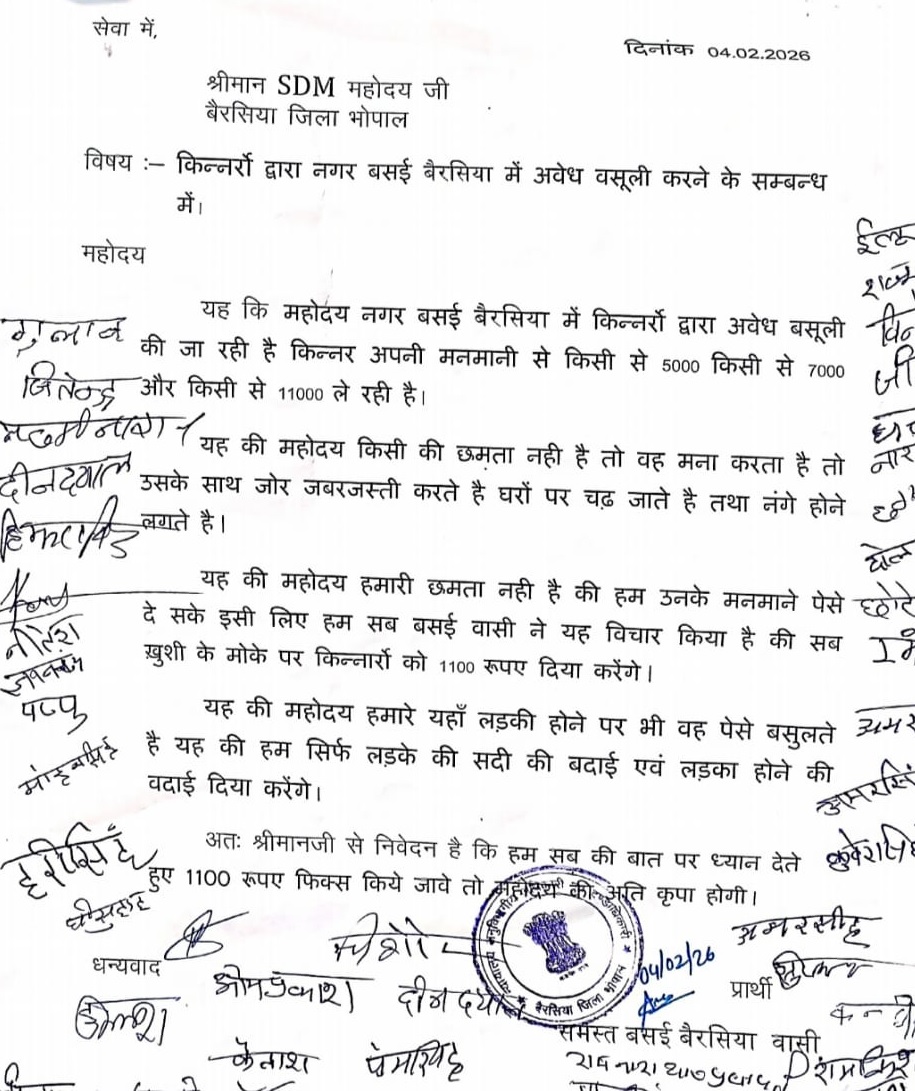 सेवा में,
दिनांक 04.02.2026
श्रीमान SDM महोदय जी
बैरसिया जिला भोपाल
विषय :– किन्नर्रो द्वारा नगर बसई बैरसिया में अवेध वसूली करने के सम्बन्ध
में।
महोदय
यह कि महोदय नगर बसई बैरसिया में किन्नर्रो द्वारा अवेध बसूली
की जा रही है किन्नर अपनी मनमानी से किसी से 5000 किसी से 7000
और किसी से 11000 ले रही है।
यह की महोदय किसी की छमता नही है तो वह मना करता है तो
उसके साथ जोर जबरजस्ती करते है घरों पर चढ़ जाते है तथा नंगे होने
लगते है।
यह की महोदय हमारी छमता नही है की हम उनके मनमाने पेसे
दे सके इसी लिए हम सब बसई वासी ने यह विचार किया है की सब
ख़ुशी के मोके पर किन्नार्रो को 1100 रूपए दिया करेंगे।
यह की महोदय हमारे यहाँ लड़की होने पर भी वह पेसे बसुलते
है यह की हम सिर्फ लड़के की सदी की बदाई एवं लड़का होने की
वदाई दिया करेंगे।
अतः श्रीमानजी से निवेदन है कि हम सब की बात पर ध्यान देते
हुए 1100 रूपए फिक्स किये जावे तो महोदय की अति कृपा होगी।
धन्यवाद
प्रार्थी
समस्त बसई बैरसिया वासी
गुलाब
जितेन्द्र
दीनदयाल
नीतेश
पप्पु
हरीसिंह
ओमप्रकाश
दीनदयाल
कैलाश
प्रेमसिंह
अमरसिंह
04/02/26
बैरसिया जिला भोपाल